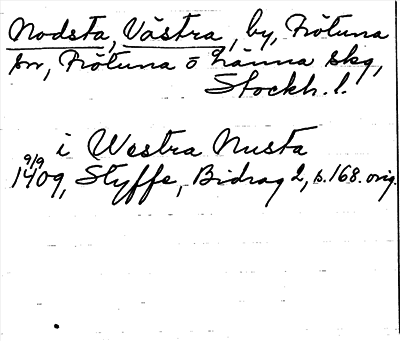 Nodsta, Västra, by, Frötuna
sn, Frötuna o Länna skg,
Stockh. l.
i Westra Nusta
9/9
1409, Styffe, Bidrag 2, s. 168. orig.